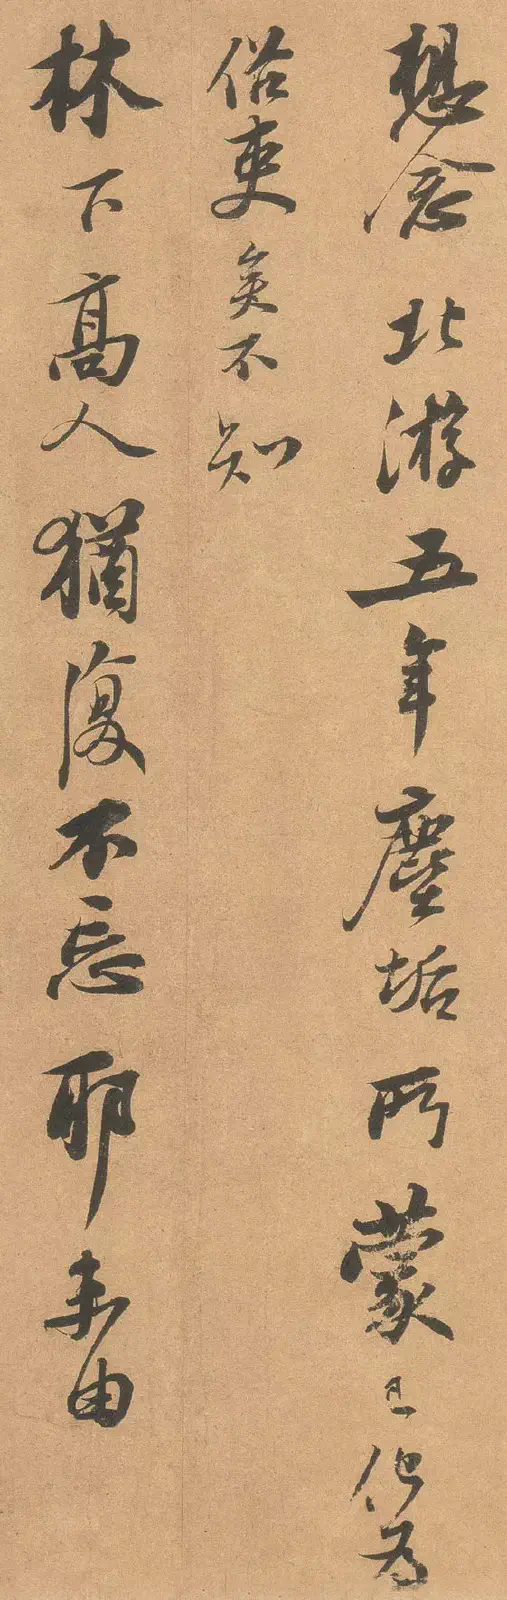 想念北游五年塵垢所蒙已化為
俗吏矣不知
林下高人猶復不忘耶未由